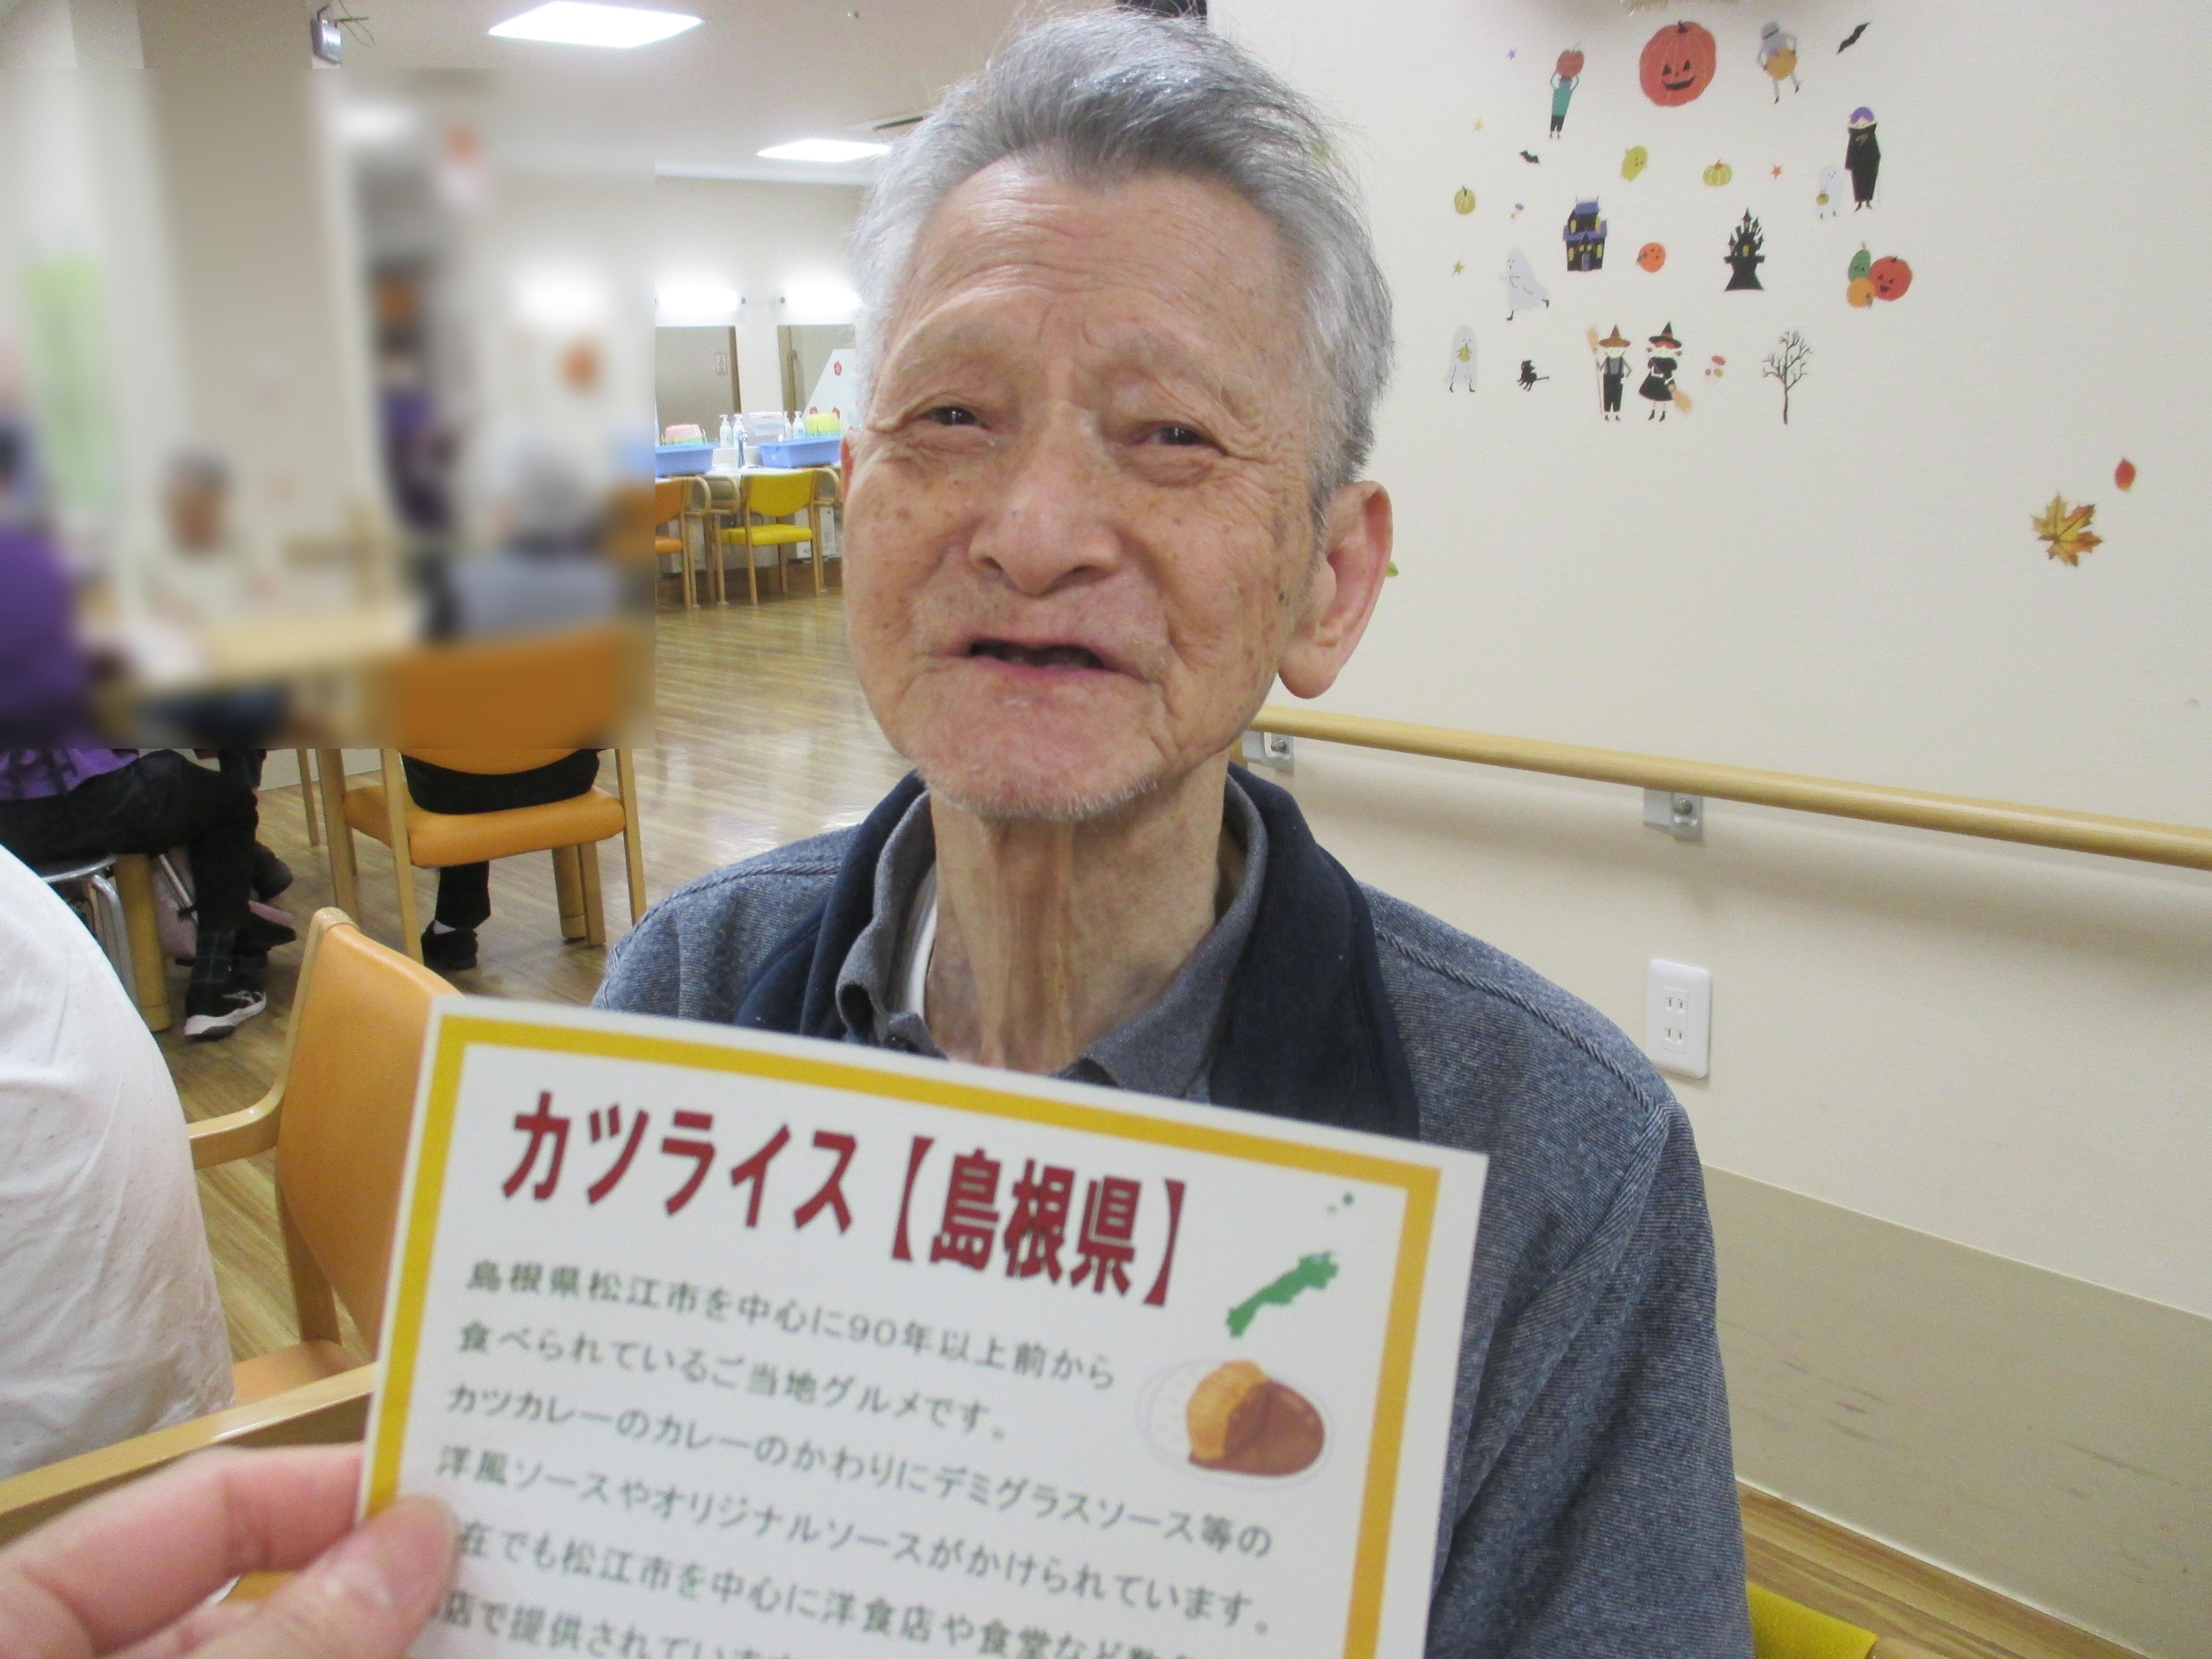 カツライス【島根県】
島根県松江市を中心に90年以上前から
食べられているご当地グルメです。
カツカレーのカレーのかわりにデミグラスソース等の
洋風ソースやオリジナルソースがかけられています。
在でも松江市を中心に洋食店や食堂など数
店で提供されています